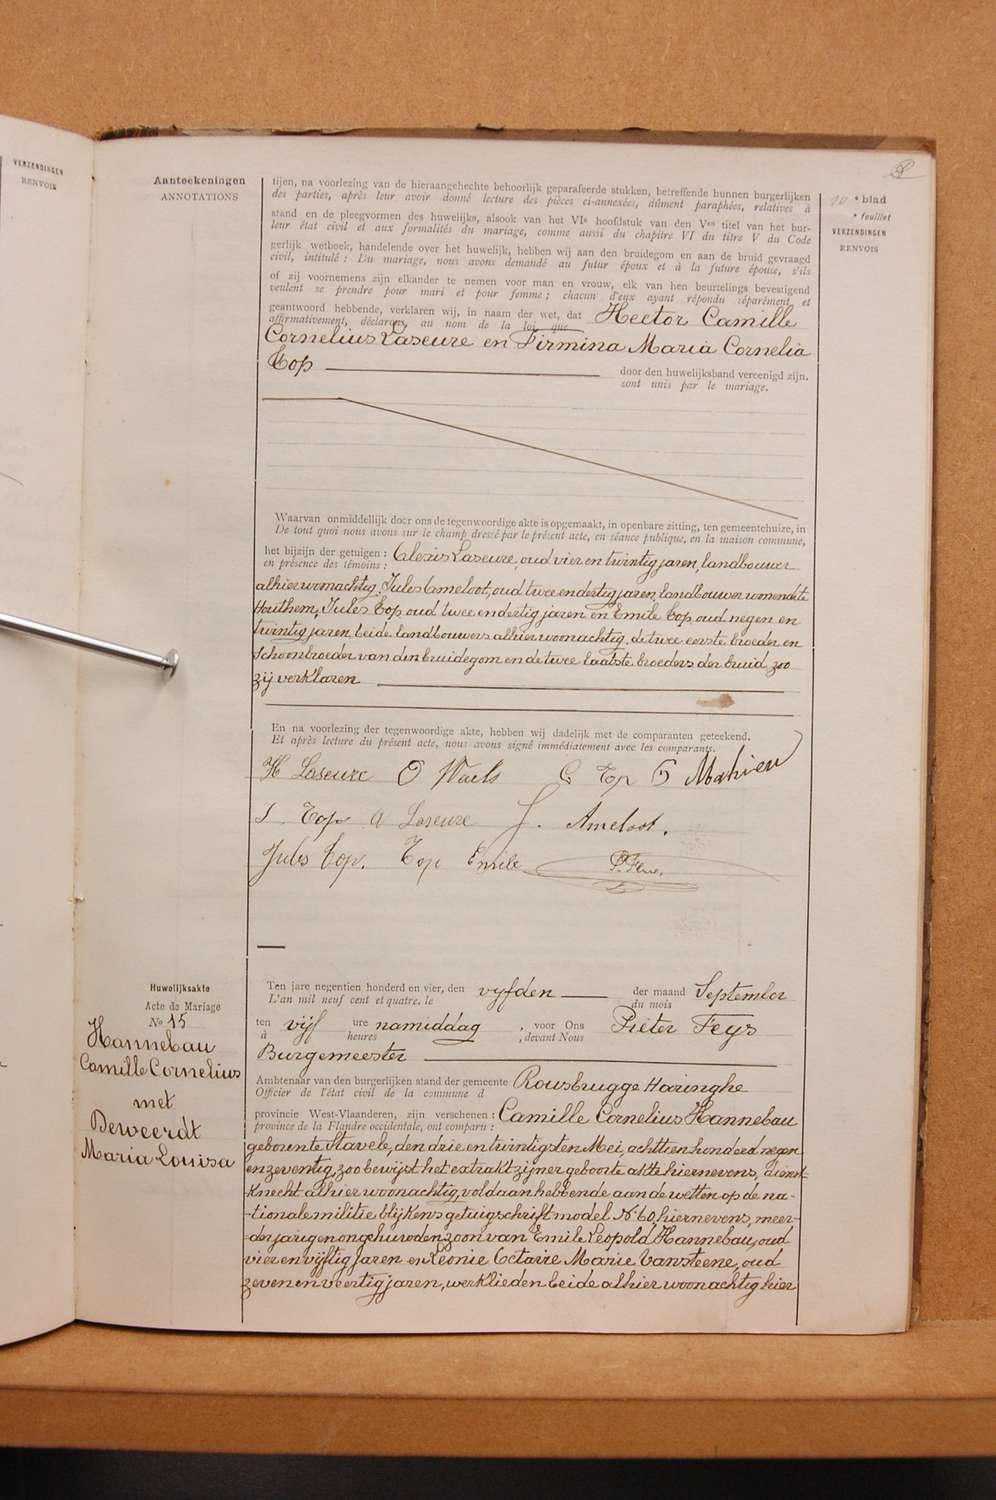 VERZENDINGEN
RENVOIS
Aanteekeningen
ANNOTATIONS
blad
feuillet
VERZENDINGEN
RENVOIS
tijen, na voorlezing van de hieraangehechte behoorlijk geparafeerde stukken, betreffende hunnen burgerlijken
des parties, après leur avoir donné lecture des pièces ci-annexées, dûment paraphées, relatives à
stand en de pleegvormen des huwelijks, alsook van het VIe hoofdstuk van den Ven titel van het bur-
leur état civil et aux formalités du mariage, comme aussi du chapitre VI du titre V du Code
gerlijk wetboek, handelende over het huwelijk, hebben wij aan den bruidegom en aan de bruid gevraagd
civil, intitulé : Du mariage, nous avons demandé au futur époux et à la future épouse, s'ils
of zij voornemens zijn elkander te nemen voor man en vrouw, elk van hen beurtelings bevestigend
veulent se prendre pour mari et pour femme ; chacun d'eux ayant répondu séparément et
geantwoord hebbende, verklaren wij, in naam der wet, dat Hector Camille
affirmativement, déclarons, au nom de la loi, que
Cornelius Laseure en Firmina Maria Cornelia
Top
door den huwelijksband vereenigd zijn.
sont unis par le mariage.
Waarvan onmiddellijk door ons de tegenwoordige akte is opgemaakt, in openbare zitting, ten gemeentehuize, in
De tout quoi nous avons sur le champ dressé par le présent acte, en séance publique, en la maison commune,
het bijzijn der getuigen : Alexis Laseure, oud vier en twintig jaren, landbouwer
en présence des témoins :
alhier woonachtig, Jules Ameloot, oud twee en dertig jaren, landbouwer wonende te
Houthem, Jules Top, oud twee en dertig jaren en Emile Top, oud negen en
twintig jaren, beide landbouwers alhier woonachtig, de twee eerste broeder en
schoonbroeder van den bruidegom en de twee laatste broeders der bruid, zoo
zij verklaren
En na voorlezing der tegenwoordige akte, hebben wij dadelijk met de comparanten geteekend.
Et après lecture du présent acte, nous avons signé immédiatement avec les comparants.
H Laseure O Waels C Top Mahieu
Top A Laseure J. Ameloot.
Jules Top. Top Emile P. Feys.
Huwelijksakte
Acte de Mariage
No 15
Hannebau
Camille Cornelius
met
Deweerdt
Maria Louisa
Ten jare negentien honderd en vier, den vyfden der maand September
L'an mil neuf cent et quatre, le du mois
ten vijf ure namiddag , voor Ons Pieter Feys
à heures , devant Nous
Burgemeester
Ambtenaar van den burgerlijken stand der gemeente Rousbrugge Haringhe
Officier de l'état civil de la commune d
provincie West-Vlaanderen, zijn verschenen : Camille Cornelius Hannebau
province de la Flandre occidentale, ont comparu :
geboren te Stavele, den drie en twintigsten Mei, achttien honderd negen
en zeventig, zoo bewijst het extrakt zijner geboorte akte hiernevens, dienst-
knecht alhier woonachtig, voldaan hebbende aan de wetten op de na-
-tionale militie blijkens getuigschrift model No 60, hiernevens, meer-
-derjarigen ongehuwden zoon van Emile Leopold Hannebau, oud
vier en vijftig jaren en Leonie Octavie Marie Vansteene, oud
zeven en veertig jaren, werklieden beide alhier woonachtig hier